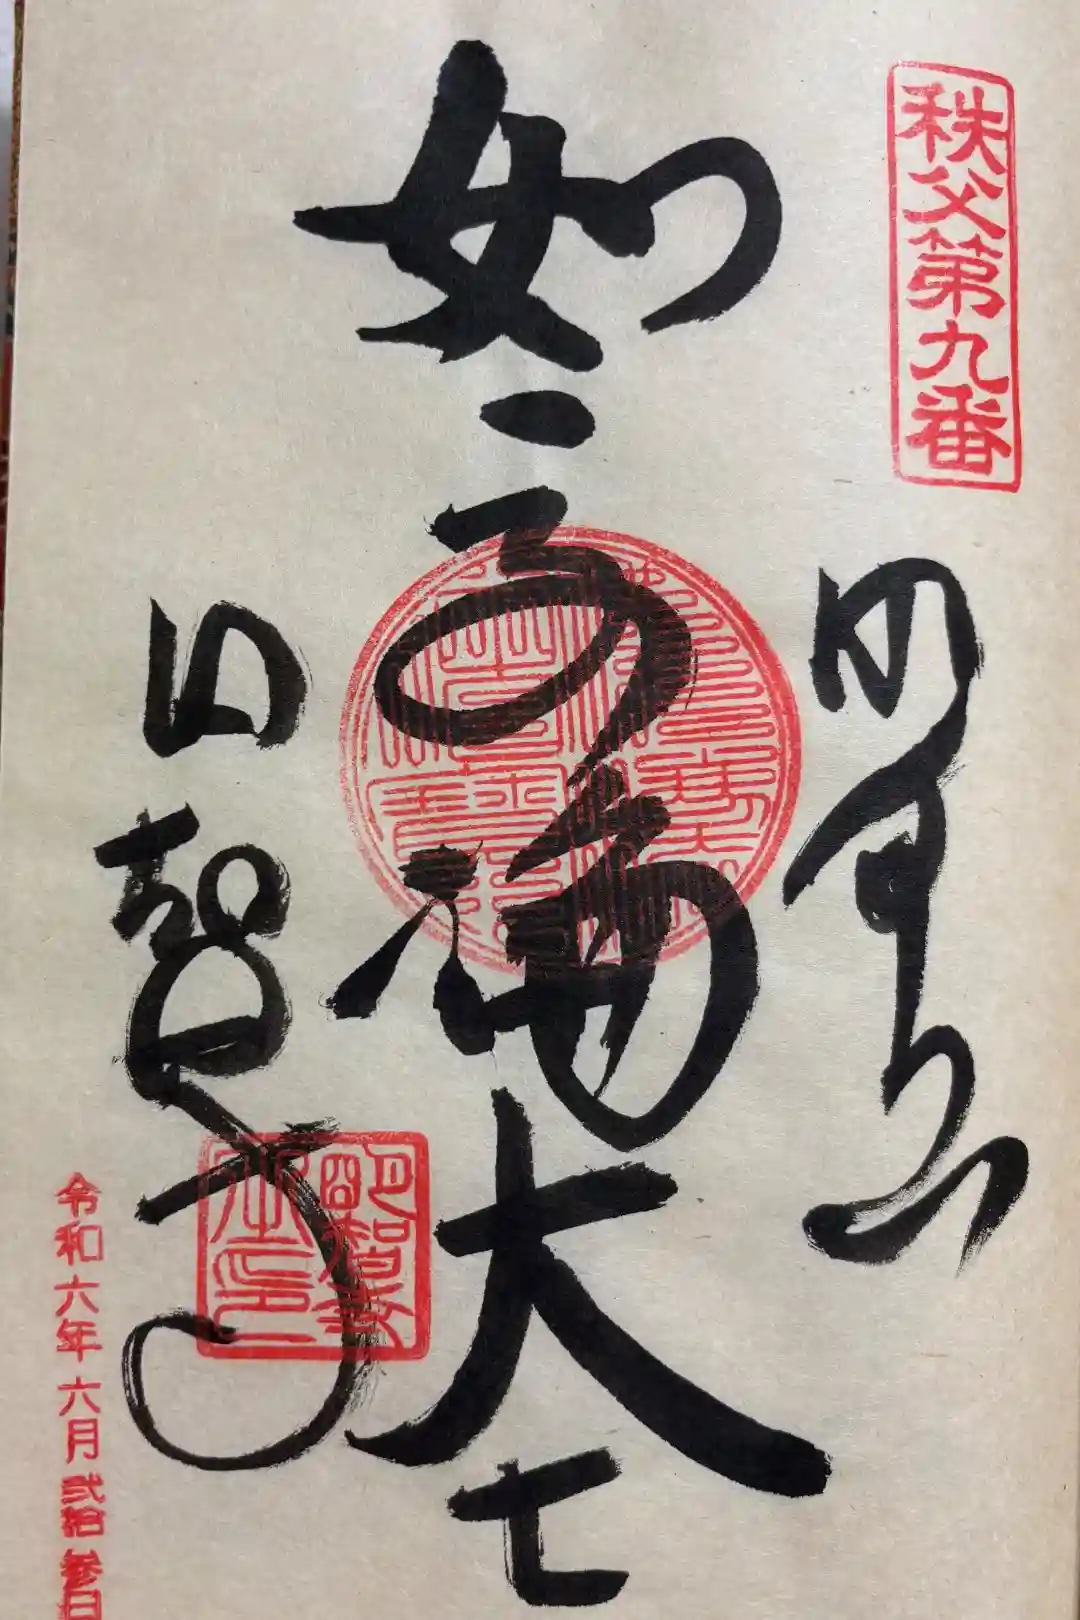 秩父第九番
明星山
如意輪大士
明智寺
令和六年六月弐拾参日